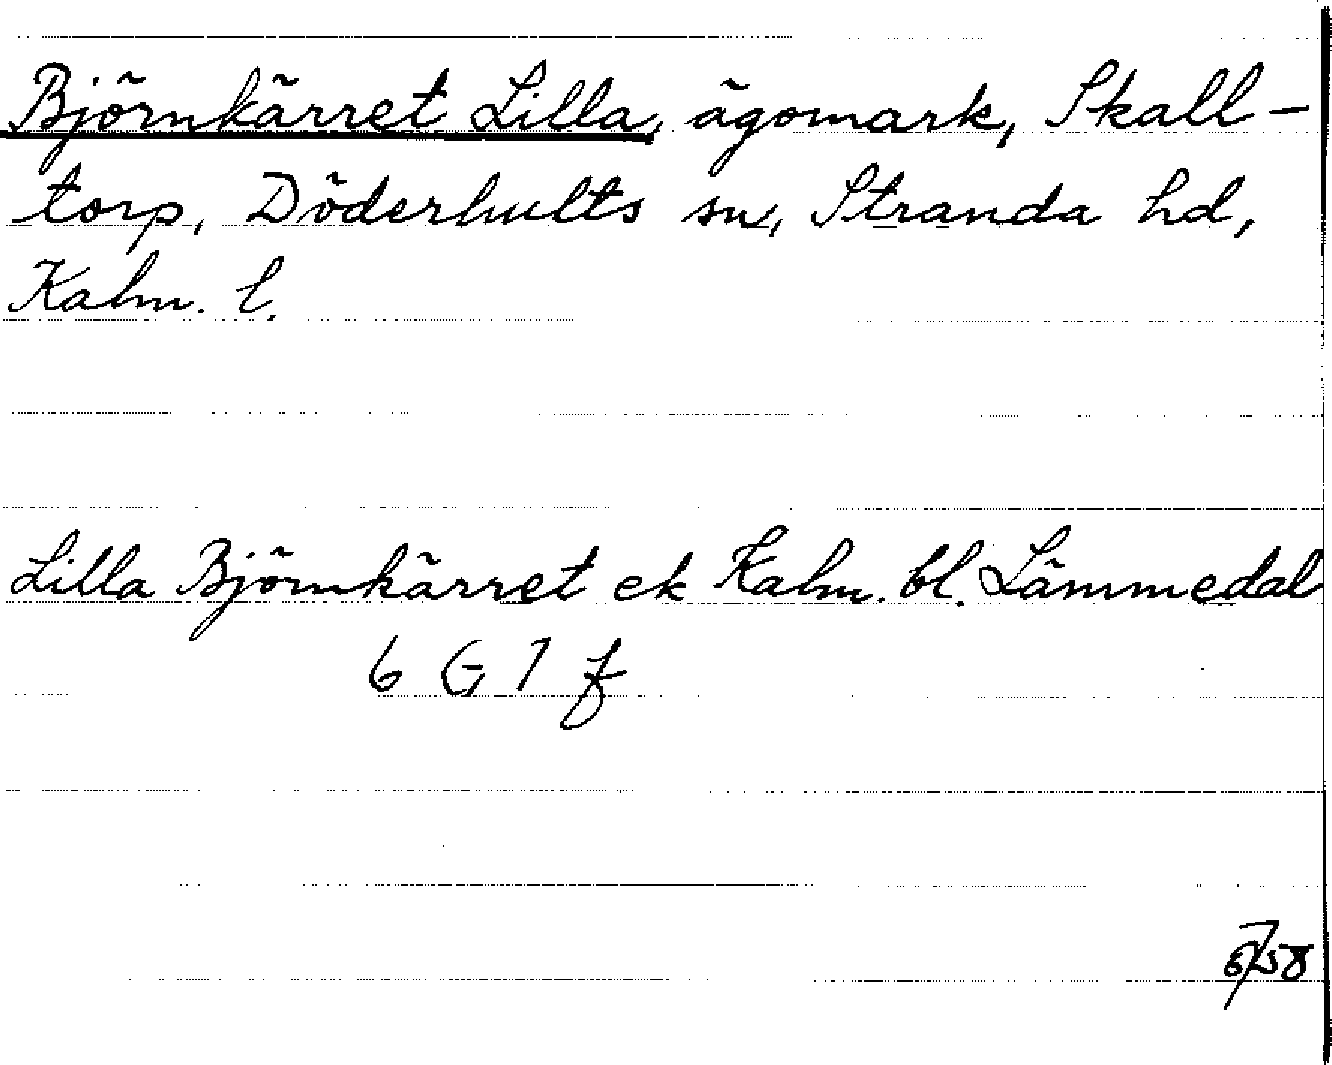 Björnkärret Lilla, ägomark, Skall-
torp, Döderhults sn, Stranda hd,
Kalm. l.
Lilla Björnkärret ek Kalm. bl. Lämmedal
6 G 7 f